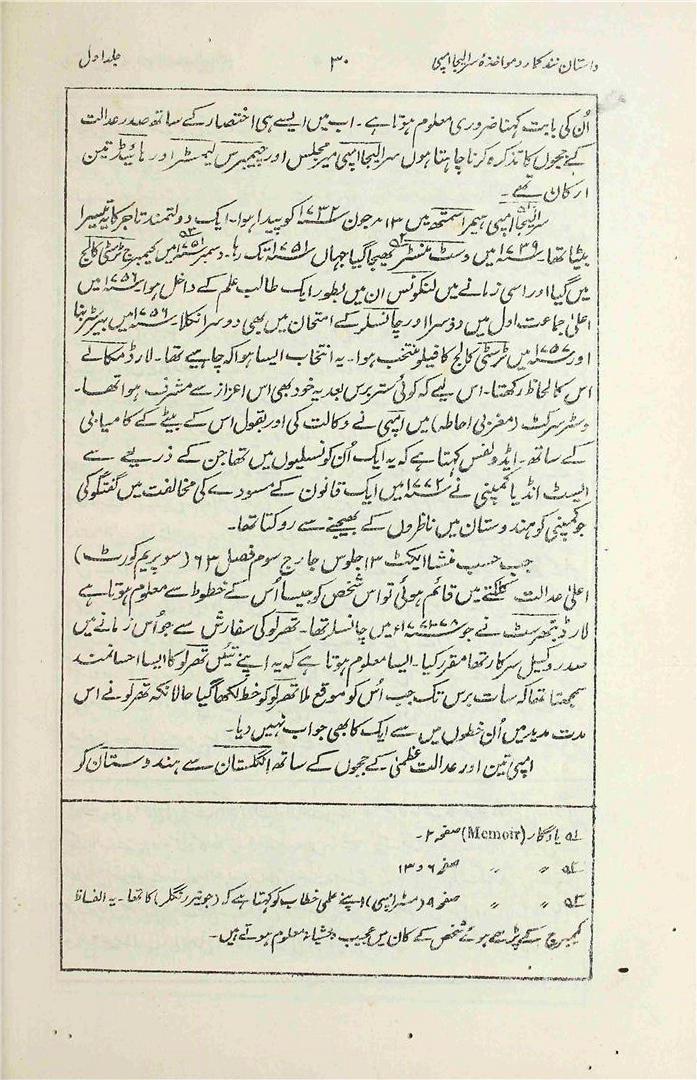 داستان نندکمار و مواخذۂ سر الیجا امپی ۳۰ جلد اول
اُن کی بابت کہنا ضروری معلوم ہوتا ہے ۔ اب میں ایسے ہی اختصار کے ساتھ صدر عدالت
کے ججوں کا تذکرہ کرنا چاہتا ہوں سر الیجا امپی میر مجلس اور چیمبرس لیمسٹر اور ہائیڈ تین
ارکان تھے ۔
سر الیجا امپی ہیمر اسمتھ میں ۱۳؍ جون ۱۷۳۲ء کو پیدا ہوا ۔ ایک دولتمند تاجر کا تیسرا
بیٹا تھا ۱۷۳۹ء میں وسٹ منسٹر بھیجا گیا جہاں ۱۷۵۱ء تک رہا ۔ دسمبر ۱۷۵۱ء میں کیمبرج ٹرسٹی کالج
میں گیا اور اسی زمانے میں لنکونس ان میں بطور ایک طالب علم کے داخل ہوا ۱۷۵۶ء میں
اعلیٰ جماعت اول میں دوسرا اور چانسلر کے امتحان میں بھی دوسرا نکلا ۱۷۵۶ء میں بیرسٹر بنا
اور ۱۷۵۷ء میں ٹرسٹی کالج کا فیلو منتخب ہوا ۔ یہ انتخاب ایسا ہوا کہ چاہیے تھا ۔ لارڈ مکالے
اس کا لحاظ رکھتا ۔ اس لیے کہ کوئی ستر برس بعد یہ خود بھی اس اعزاز سے مشرف ہوا تھا ۔
وسٹر سرکٹ (مغربی احاطہ) میں امپی نے وکالت کی اور بقول اس کے بیٹے کے کامیابی
کے ساتھ ۔ ایڈولفس کہتا ہے کہ یہ ایک اُن کونسلیوں میں تھا جن کے ذریعے سے
ایسٹ انڈیا کمپنی نے ۱۷۷۲ء میں ایک قانون کے مسودے کی مخالفت میں گفتگو کی
جو کمپنی کو ہندوستان میں ناظروں کے بھیجنے سے روکتا تھا ۔
جب حسب منشا ایکٹ ۱۳ جلوس جارج سوم فصل ۶۳ (سوپریم کورٹ)
اعلیٰ عدالت کلکتے میں قائم ہوئی تو اس شخص کو جیسا اُس کے خطوط سے معلوم ہوتا ہے
لارڈ بتھرسٹ نے جو ۷۸-۱۷۷۱ء میں چانسلر تھا ۔ تھرلو کی سفارش سے جو اُس زمانے میں
صدر وکیل سرکار تھا مقرر کیا ۔ ایسا معلوم ہوتا ہے کہ یہ اپنے تئیں تھرلو کا ایسا احسانمند
سمجھتا تھا کہ سات برس تک جب اُس کو موقع ملا تھرلو کو خط لکھا گیا حالانکہ تھرلو نے اس
مدت مدید میں اُن خطوں میں سے ایک کا بھی جواب نہیں دیا ۔
امپی تین اور عدالت عظمیٰ کے ججوں کے ساتھ انگلستان سے ہندوستان کو
۵۱ یادگار (Memoir) صفحہ ۲ ۔
۵۲ ” ” صفحہ ۶ و ۱۳
۵۳ ” ” صفحہ ۹ (مسٹر امپی) اپنے علمی خطاب کو کہتا ہے کہ (جونیر رنگلر) کا تھا ۔ یہ الفاظ
کیمبرج کے پڑھے ہوئے شخص کے کان میں عجیب وحشیانہ معلوم ہوتے ہیں ۔